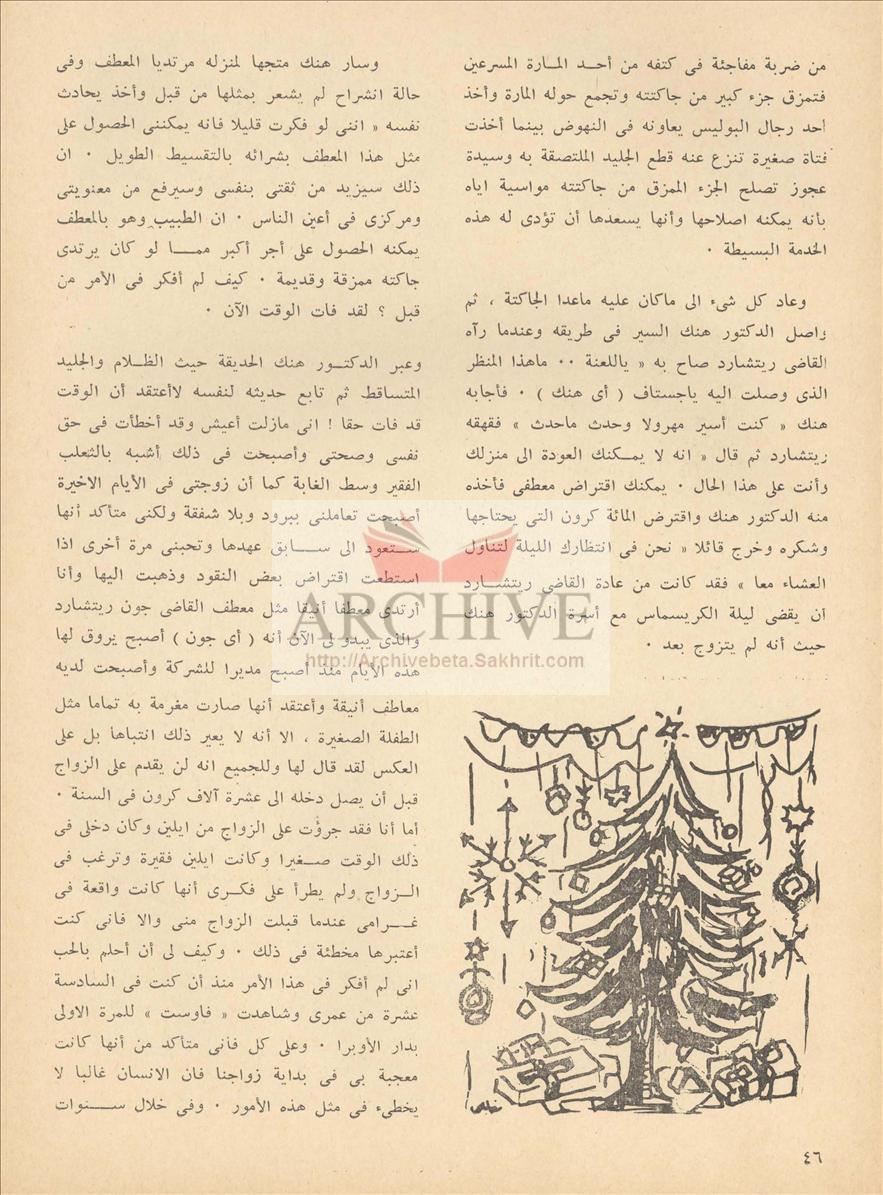 من ضربة مفاجئة فى كتفه من أحـد المـارة المسرعين
فتمزق جزء كبير من جاكتته وتجمع حوله المارة وأخذ
أحد رجال البوليس يعاونه فى النهوض بينما أخذت
فتاة صغيرة تنزع عنه قطع الجليد الملتصقة به وسيدة
عجوز تصلح الجزء الممزق من جاكتته مواسية اياه
بأنه يمكنه اصلاحها وأنها يسعدها أن تؤدى له هذه
الخدمة البسيطة ٠
وعاد كل شىء الى ماكان عليه ماعدا الجاكتة ، ثم
واصل الدكتور هنك السير فى طريقه وعندما رآه
القاضى ريتشارد صاح به « ياللعنة ٠٠ ماهذا المنظر
الذى وصلت اليه ياجستاف ( أى هنك ) ٠ فأجابه
هنك « كنت أسير مهرولا وحدث ماحدث » فقهقه
ريتشارد ثم قال « انه لا يمـكنك العودة الى منزلك
وأنت على هذا الحال ٠ يمكنك اقتراض معطفى فأخذه
منه الدكتور هنك واقترض المائة كرون التى يحتاجها
وشكره وخرج قائلا « نحن فى انتظارك الليلة لتناول
العشاء معا » فقد كانت من عادة القاضى ريتشـارد
ان يقضى ليلة الكريسماس مع أسرة الدكتور هنك
حيث أنه لم يتزوج بعد ٠
وسار هنك متجها لمنزله مرتديا المعطف وفى
حالة انشراح لم يشعر بمثلها من قبل وأخذ يحادث
نفسه « اننى لو فكرت قليلا فانه يمكننى الحصول على
مثل هذا المعطف بشرائه بالتقسيط الطويل ٠ ان
ذلك سيزيد من ثقتى بنفسى وسيرفع من معنويتى
ومركزى فى أعين الناس ٠ ان الطبيب وهو بالمعطف
يمكنه الحصول على أجر أكبر ممـــا لو كان يرتدى
جاكته ممزقة وقديمة ٠ كيف لم أفكر فى الأمر من
قبل ؟ لقد فات الوقت الآن ٠
وعبر الدكتـور هنك الحديقة حيث الظـلام والجليد
المتساقط ثم تابع حديثه لنفسه لاأعتقد أن الوقت
قد فات حقا ! انى مازلت أعيش وقد أخطأت فى حق
نفسى وصحتى وأصبحت فى ذلك أشبه بالثعلب
الفقير وسط الغابة كما أن زوجتى فى الأيام الاخيرة
أصبحت تعاملنى ببرود وبلا شفقة ولكنى متأكد أنها
ستـعود الى ســـابق عهدها وتحبنى مرة أخرى اذا
استطعت اقتراض بعض النقود وذهبت اليها وأنا
أرتدى معطفا أنيقا مثل معطف القاضى جون ريتشارد
والذى يبدو لى الآن أنه ( أى جون ) أصبح يروق لها
هذه الأيام منذ أصبح مديرا للشركة وأصبحت لديه
معاطف أنيقة وأعتقد أنها صارت مغرمة به تماما مثل
الطفلة الصغيرة ، الا أنه لا يعير ذلك انتباها بل على
العكس لقد قال لها وللجميع انه لن يقدم على الزواج
قبل أن يصل دخله الى عشرة آلاف كرون فى السنة ٠
أما أنا فقد جرؤت على الزواج من ايلين وكان دخلى فى
ذلك الوقت صـغيرا وكانت ايلين فقيرة وترغب فى
الـزواج ولم يطرأ على فكـرى أنها كانت واقعة فى
غـــرامى عندما قبلت الزواج منى والا فانى كنت
أعتبرها مخطئة فى ذلك ٠ وكيف لى أن أحلم بالحب
انى لم أفكر فى هذا الأمر منذ أن كنت فى السادسة
عشرة من عمرى وشاهدت « فاوست » للمرة الاولى
بدار الأوبرا ٠ وعلى كل فأنى متأكد من أنها كانت
معجبة بى فى بداية زواجنا فان الانسان غالبا لا
يخطىء فى مثل هذه الأمور ٠ وفى خلال ســـنوات
ARCHIVE
http://Archivebeta.Sakhrit.com
٤٦